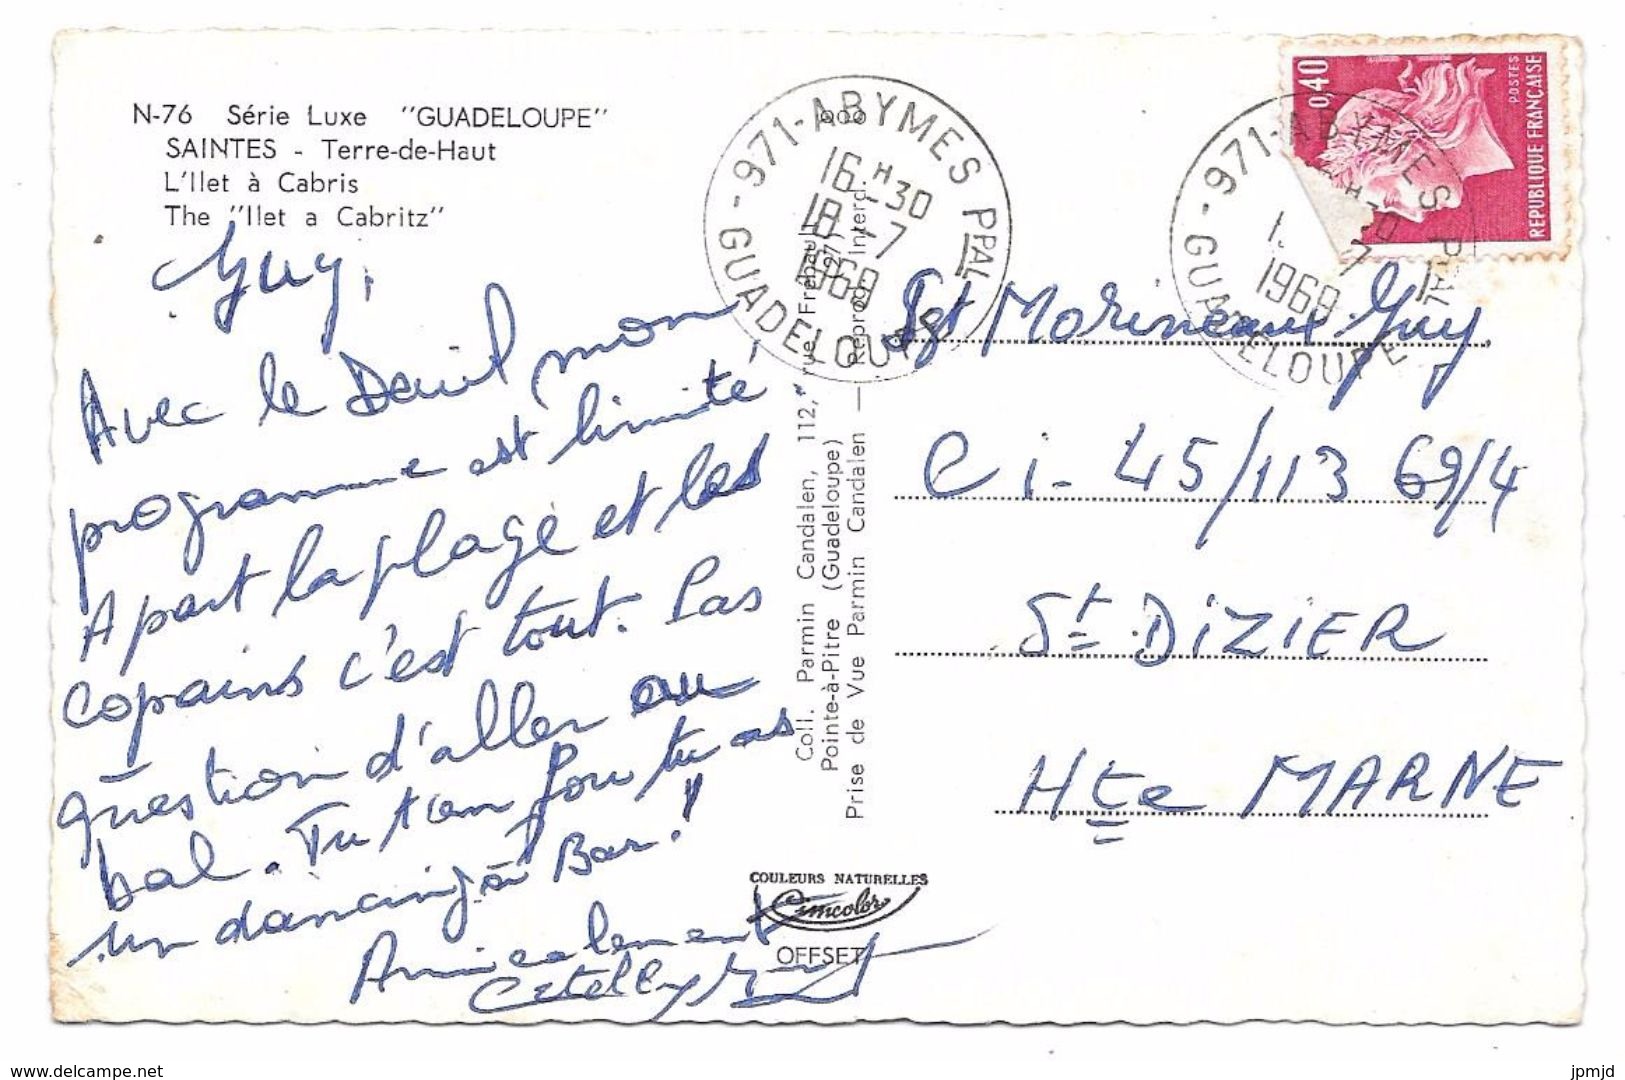 N-76 Série Luxe "GUADELOUPE"
SAINTES - Terre-de-Haut
L'Ilet à Cabris
The "Ilet a Cabritz"
Guy,
Avec le Deuil mon
programme est limité
A part la plage et les
copains c'est tout. Pas
question d'aller au
bal. Tu t'en fou tu as
un dancing à Bar!
Amicalement
Coll. Parmin Candalen, 112, rue Frébault
Pointe-à-Pitre (Guadeloupe) (971)
Prise de Vue Parmin Candalen — Reprod. Interd.
COULEURS NATURELLES
Cimcolor
OFFSET
971-ABYMES PPAL
16 H 30
18 -7
1969
GUADELOUPE
0,40
POSTES
REPUBLIQUE FRANÇAISE
971-ABYMES PPAL
1969
GUADELOUPE
Sgt Morineaux Guy
Ci- 45/113 69/4
St DIZIER
Hte MARNE
www.delcampe.net
jpmjd